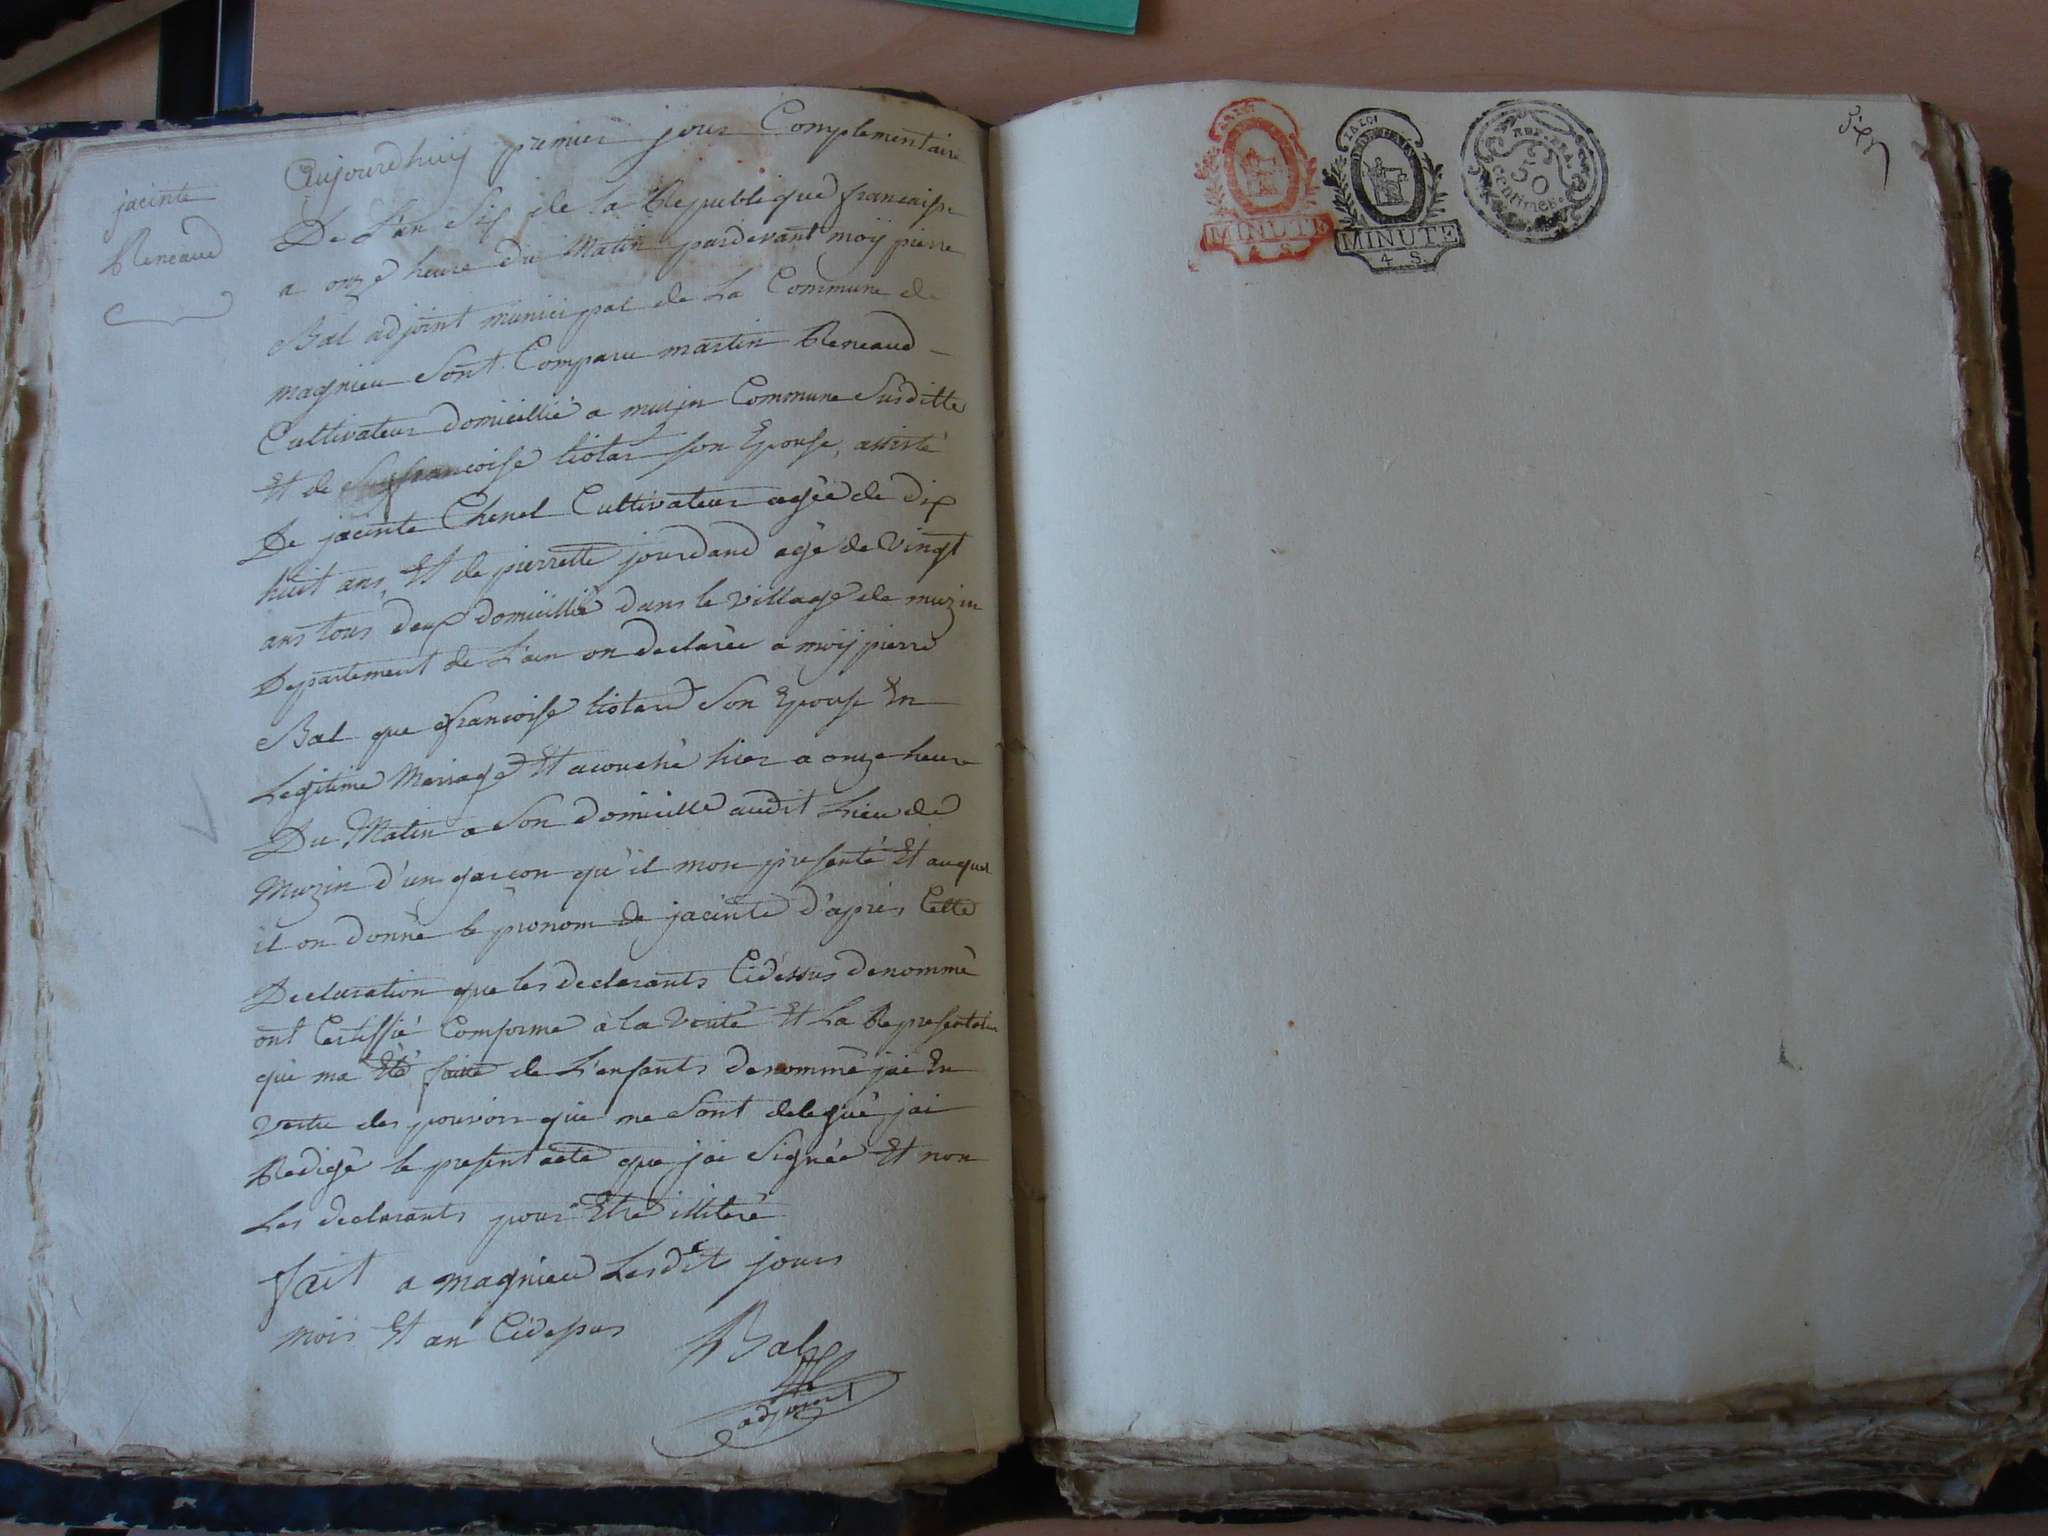 jacinte
Reneaud
Aujourdhuij premier jour Complementaire
De L'an Six de la Republique francaise
a onze heure du Matin pardevant moij pierre
Bal adjoint municipal de La Commune de
magnieu Sont Comparu martin Reneaud
Cultivateur domicillié a muzin Commune Susditte
Et de francoise liotar son Epouse, assisté
De jacinte Chenel Cultivateur agée de dix
huit ans, Et de pierrette jourdand agé de Vingt
ans tous deux domicillié dans le village de muzin
Departement de L'ain on declarée a moij pierre
Bal que francoise liotard Son Epouse En
Legitime Mariage Et acouché hier a onze heure
Du Matin a Son domicille audit Lieu de
Muzin d'un garcon qu'il mon presenté Et auquel
il on donné le pronom de jacinte d'aprés Cette
Declaration que les declarants Cidessus denommé
ont Certiffié Comforme à la Verité Et La Representation
qui ma Eté faitte de L'enfants denommé jai En
Vertu des pouvoir qui me Sont delegué jai
Redigé le present acte que jai Signée Et non
Les declarants pour Etre illiteré
fait a magnieu Lesdit jours
mois Et an Cidessus
Bal
adjoint
MINUTE
4 S.
MINUTE
4 S.
REP. FRA.
50
centimes.